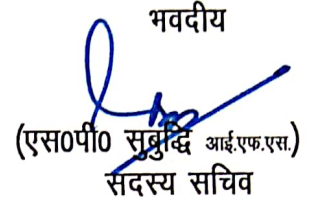 भवदीय
(एस0पी0 सुबुद्धि आई.एफ.एस.)
सदस्य सचिव